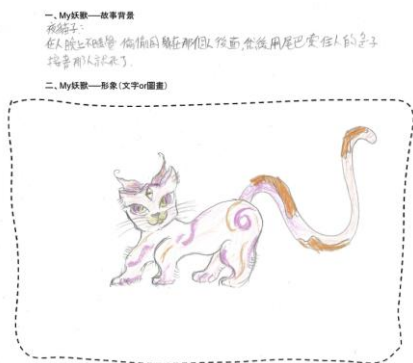 一、My妖獸──故事背景
夜貓子:
在人晚上不睡覺 偷偷的 在那個人後面,然後用尾巴 住人的
那人就死了.
二、My妖獸──形象(文字or圖畫)